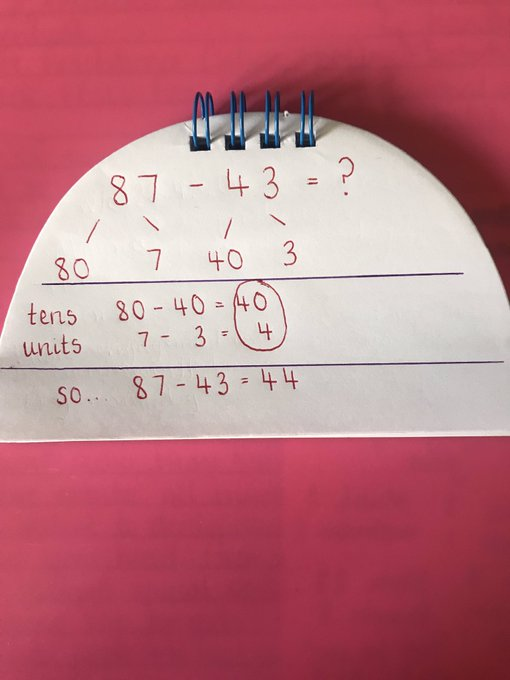 87 - 43 = ?
80 7 40 3
tens 80 - 40 = 40
units 7 - 3 = 4
so... 87 - 43 = 44